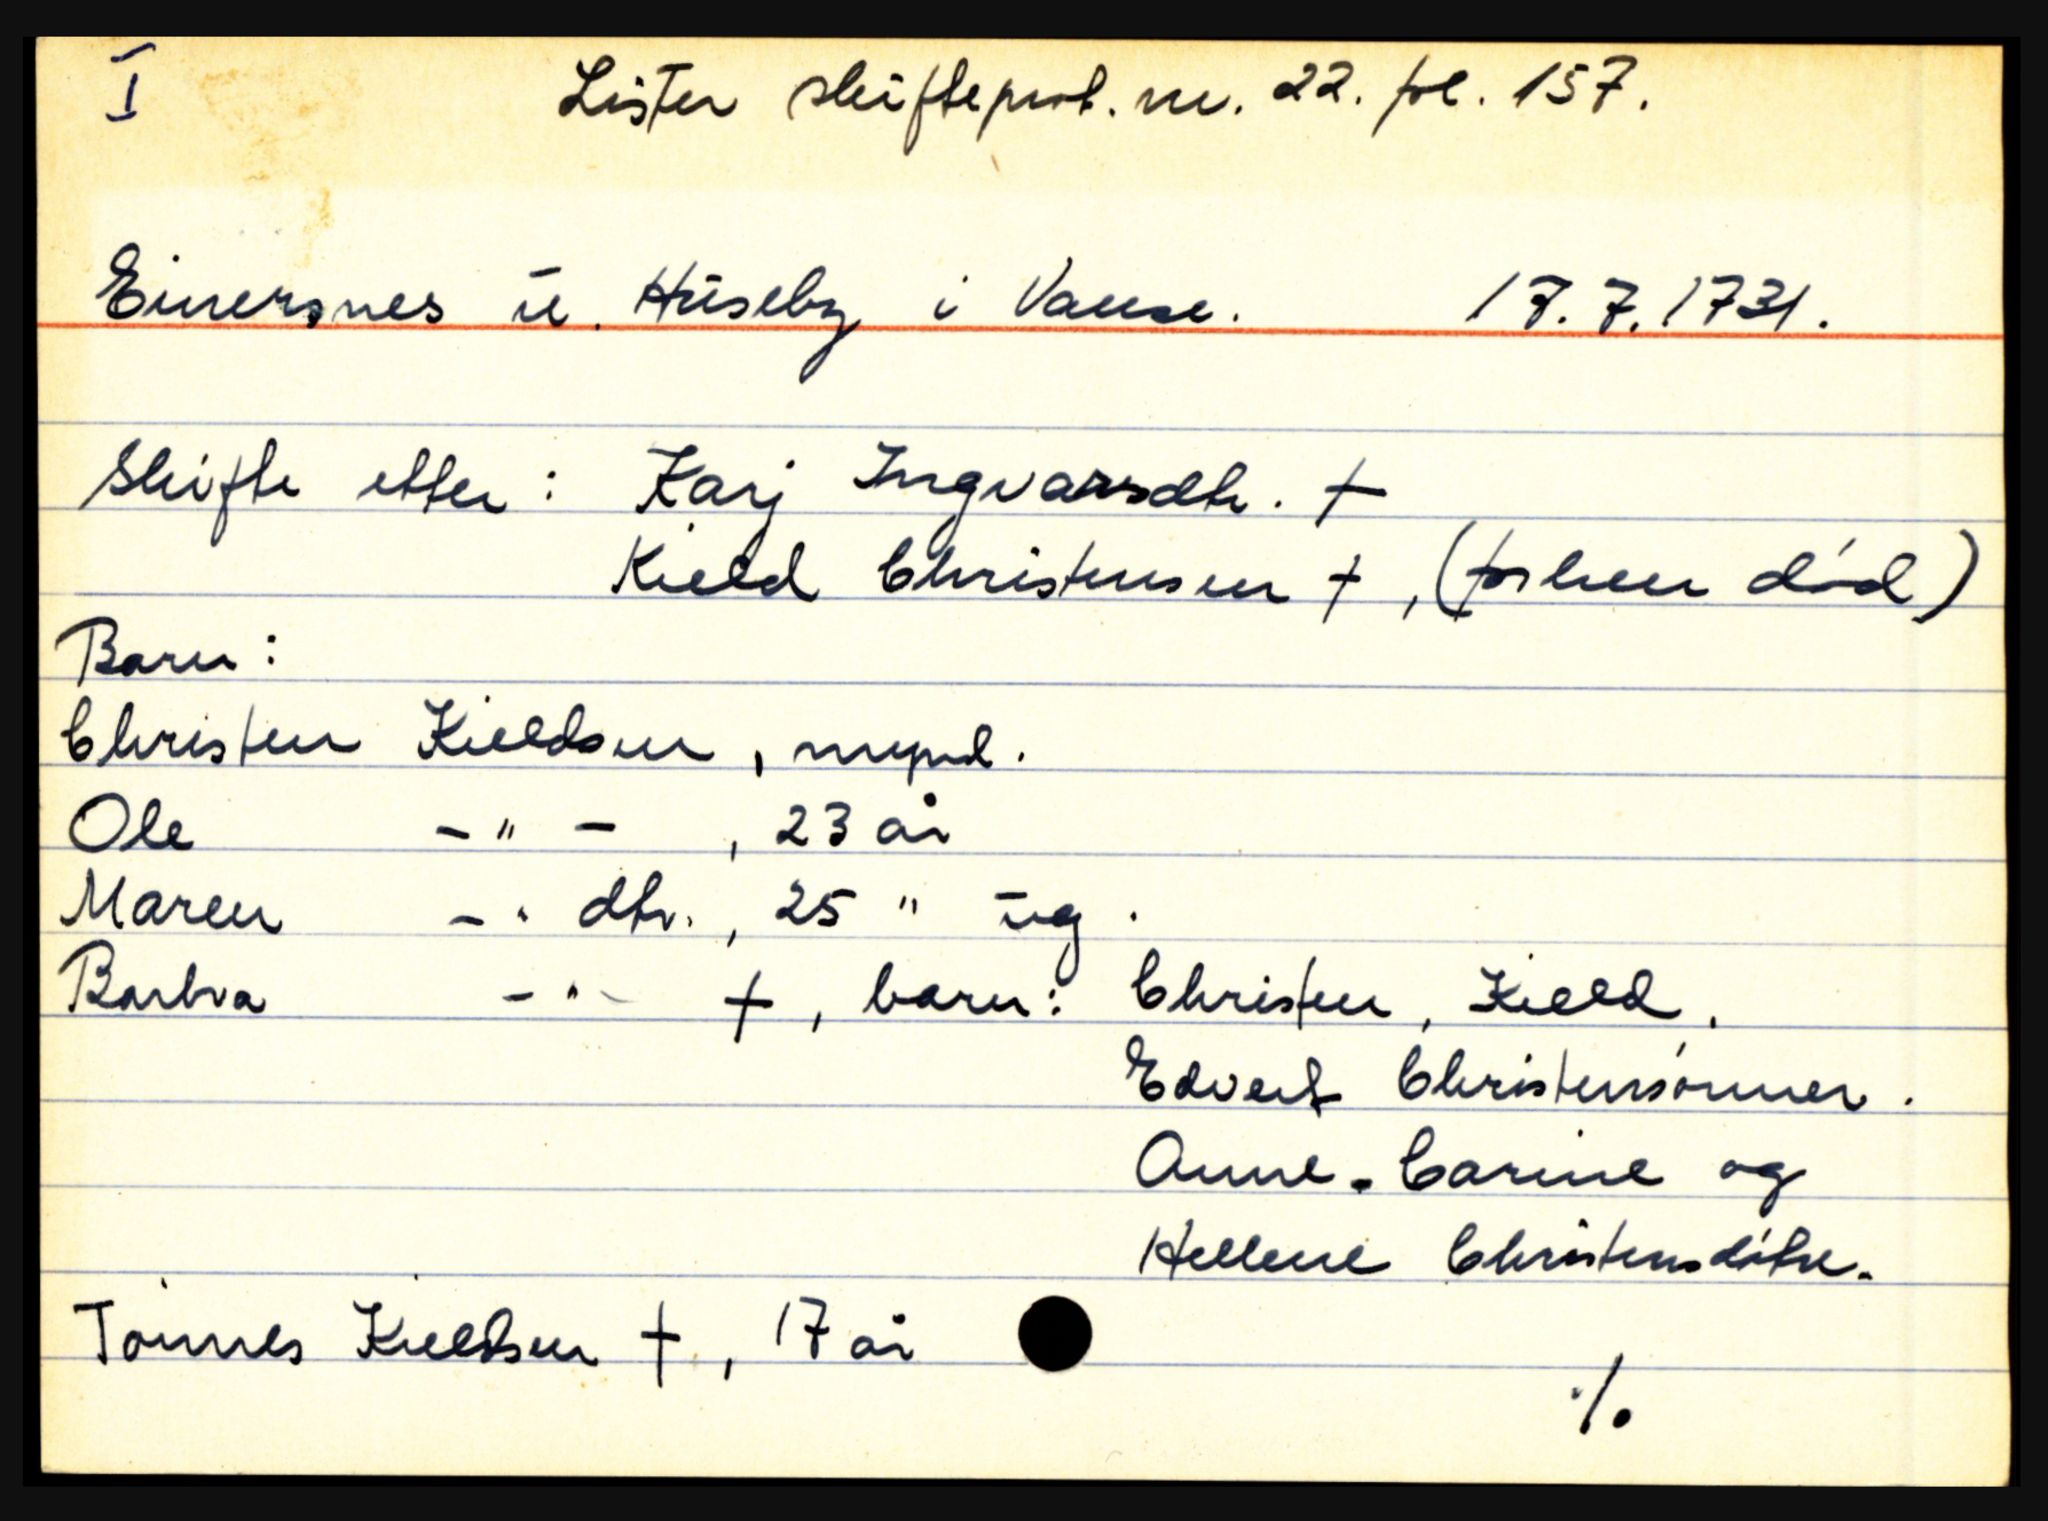 I Lister skifteprot. nr. 22. fol. 157.
Einersnes u. Huseby i Vanse. 17.7.1731.
Skifte etter: Karj Ingvarsdtr. †
Kield Christensen †, (forhen død)
Barn:
Christen Kieldsen, mynd.
Ole - " - , 23 år
Maren - " dtr., 25 " ug.
Barbra - " - †, barn: Christen, Kield,
Edvert Christensønner.
Anne. Carine og
Hellene Christensdøtre.
Tønnes Kieldsen †, 17 år
./.